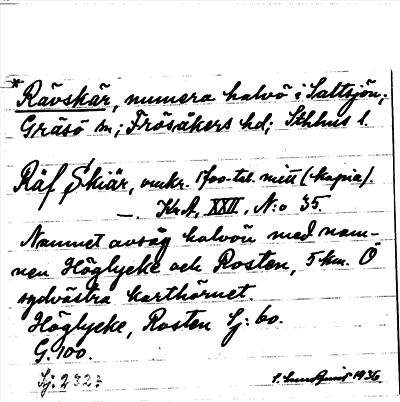 * Rävskär, numera halvö i Saltsjön;
Gräsö sn; Frösåkers hd; Sthlms l.
Räf Skiär, omkr. 1700-tal. mitt (kopia).
—. Kr A, XXII, N:o 35.
Namnet avsåg halvön med nam-
nen Höglycke och Rosten, 5 km. Ö
sydvästra karthörnet.
Höglycke, Rosten Sj: 60.
G. 100.
Sj: 2322
S. Lundquist 1936.